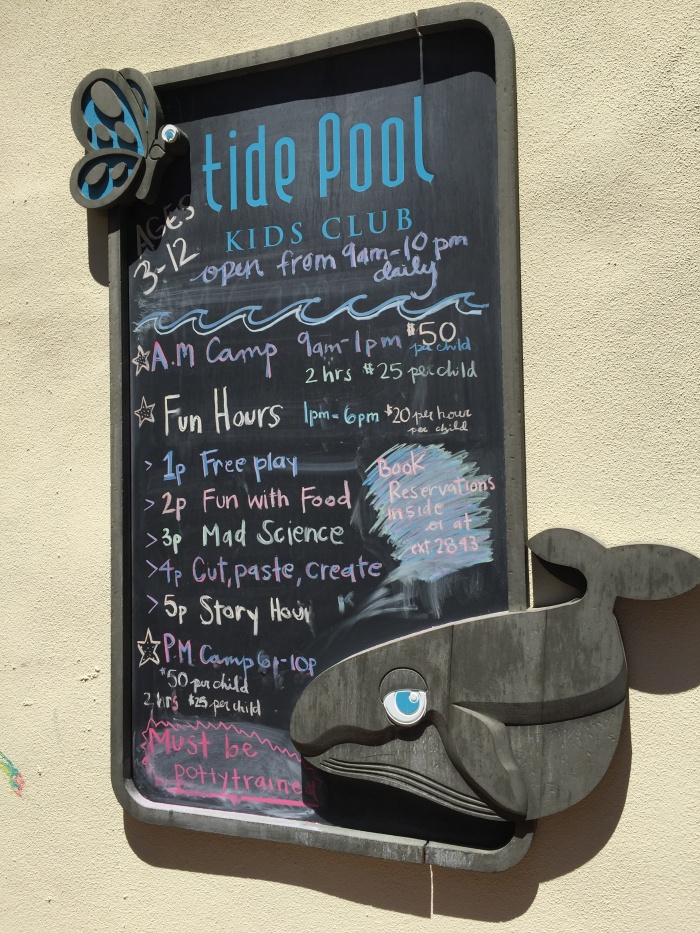 tide Pool
KIDS CLUB
AGES
3-12
open from 9am-10pm
daily
A.M Camp 9am-1pm $50
per child
2 hrs $25 per child
Fun Hours 1pm-6pm $20 per hour
per child
> 1p Free play
> 2p Fun with Food
> 3p Mad Science
> 4p Cut, paste, create
> 5p Story Hour
Book
Reservations
inside
or at
ext 2843
P.M Camp 6p-10p
$50 per child
2 hrs $25 per child
Must be
pottytraine